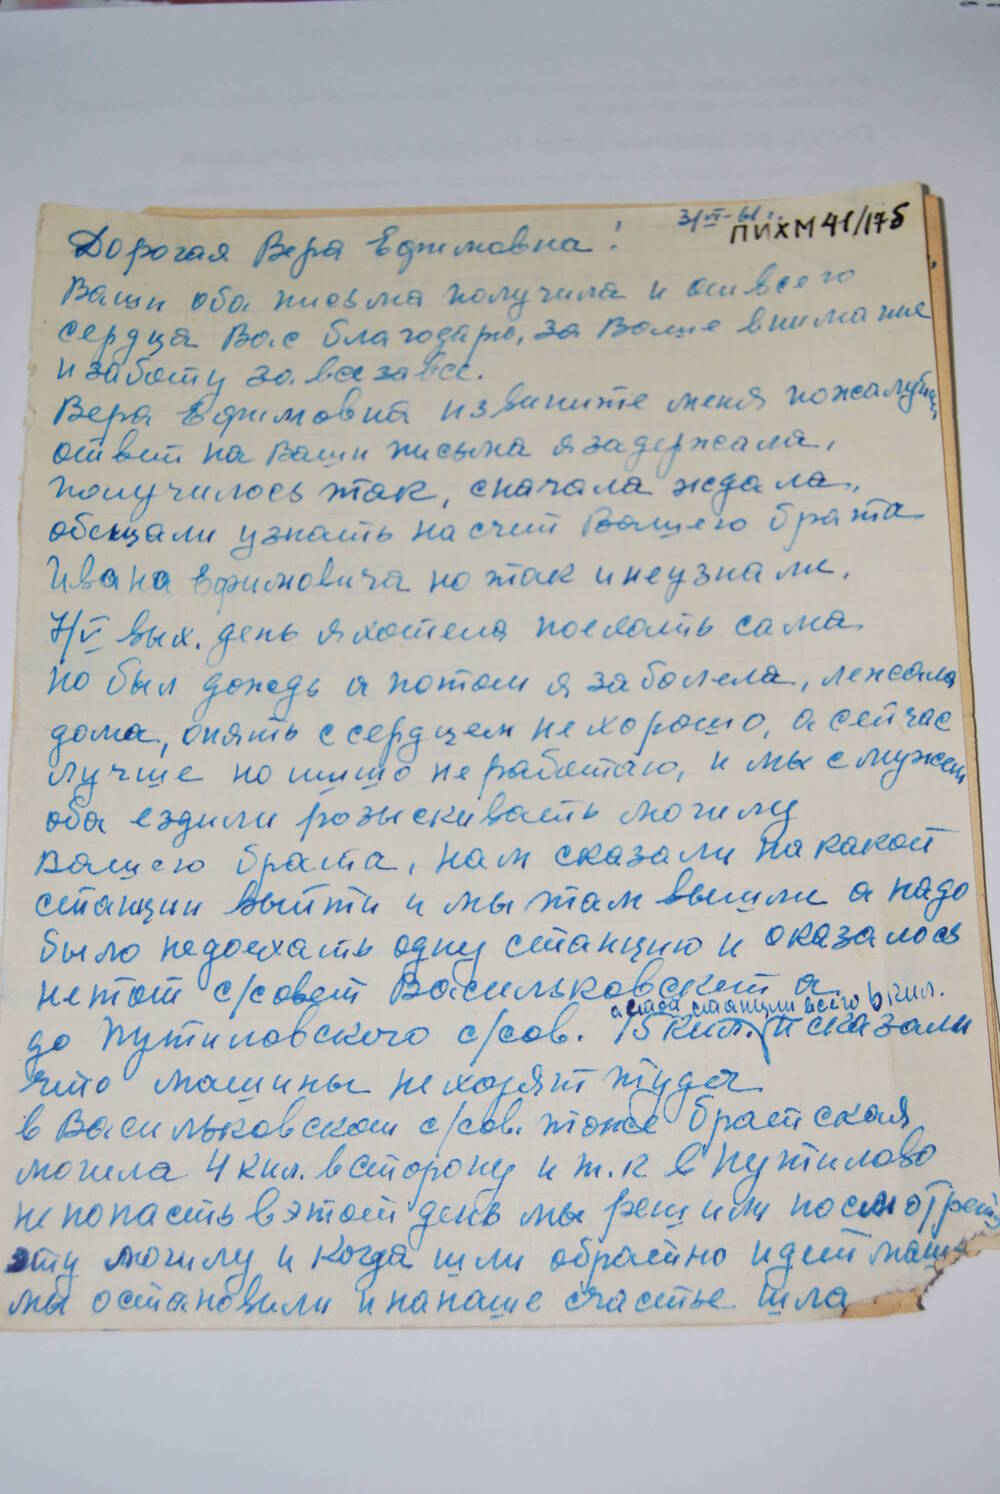 3/VI-61г.
ПИХМ 41/17б
Дорогая Вера Ефимовна!
Ваши оба письма получила и от всего
сердца Вас благодарю, за Ваше внимание
и заботу за все за все.
Вера Ефимовна извините меня пожалуйста
ответ на Ваши письма я задержала,
получилось так, сначала ждала,
обещали узнать на счет Вашего брата
Ивана Ефимовича но так и не узнали.
7/V вых. день я хотела поехать сама
но был дождь а потом я заболела, лежала
дома, опять с сердцем не хорошо, а сейчас
лучше но ничего не работаю, и мы с мужем
оба ездили розыскивать могилу
Вашего брата, нам сказали на какой
станции выйти и мы там вышли а надо
было недоехать одну станцию и оказалось
не тот с/совет Васильковский а
до Путиловского с/сов. 15 кил. и сказали
станции всего 6 кил.
что машины не ходят туда
в Васильковском с/сов. тоже братская
могила 4 кил. в сторону и т.к в Путилово
не попасть в этот день мы решили посмотреть
эту могилу и когда шли обратно идет маши
мы остановили и на наше счастье шла